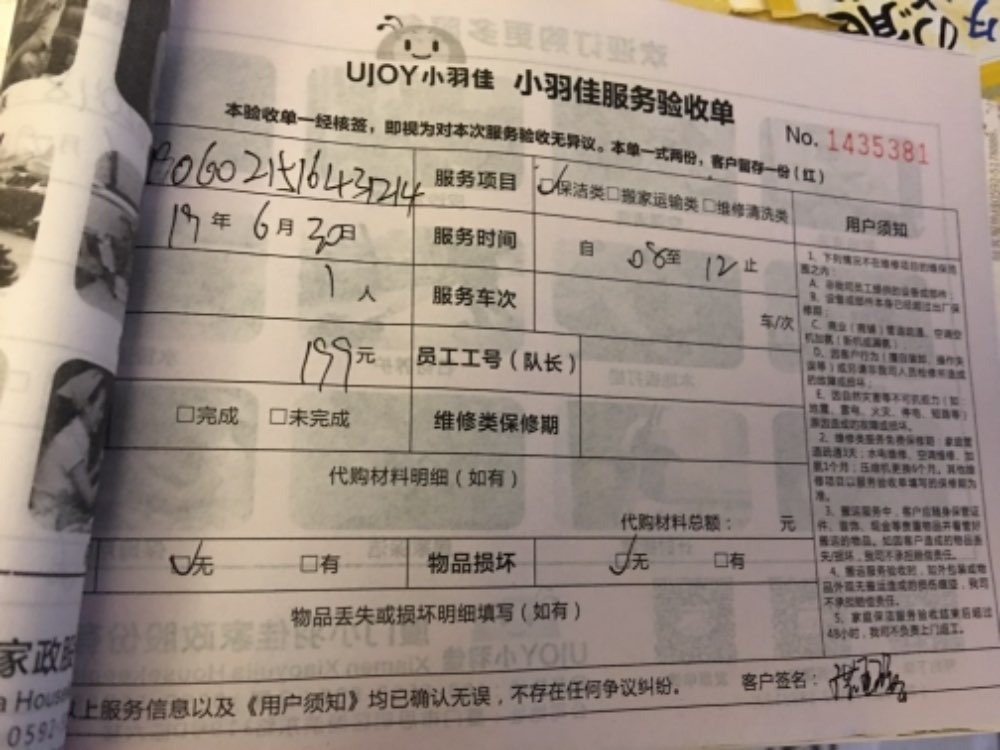 UJOY小羽佳 小羽佳服务验收单
No. 1435381
本验收单一经核签，即视为对本次服务验收无异议。本单一式两份，客户留存一份（红）
服务项目 保洁类□搬家运输类□维修清洗类 用户须知
19年6月30日 服务时间 自 08至 12止
1人 服务车次 车/次
199元 员工工号（队长）
□完成 □未完成 维修类保修期
代购材料明细（如有）
代购材料总额： 元
无 □有 物品损坏 无 □有
物品丢失或损坏明细填写（如有）
上服务信息以及《用户须知》均已确认无误，不存在任何争议纠纷。 客户签名：
1、下列情况不在维修项目的维保范
围之内：
A、非我司员工提供的设备或部件；
B、设备或部件本身已经超过出厂保
修期；
C、商业（商铺）管道疏通、空调空
机加氨（新机或漏氨）
E、因自然灾害等不可抗力（如
地震、雷电、火灾、停电、短路等）
原因造成的故障或损坏。
2、维修类服务免费保修期：家庭管
道疏通3天；水电维修、空调维修、加
氨1个月；压缩机更换6个月。其他维
修项目以服务验收单填写的保修期为
准。
3、搬运服务中，客户应随身保管证
件、首饰、现金等贵重物品并看管好
搬运的物品。如因客户造成的物品丢
失/损坏，我司不承担赔偿责任。
4、搬运服务验收时，如外包装或物
品外观无搬运造成的损伤痕迹，我司
不承担赔偿责任。
5、家庭保洁服务验收结束后超过
48小时，我司不负责上门返工。
家政服
a House
0592-